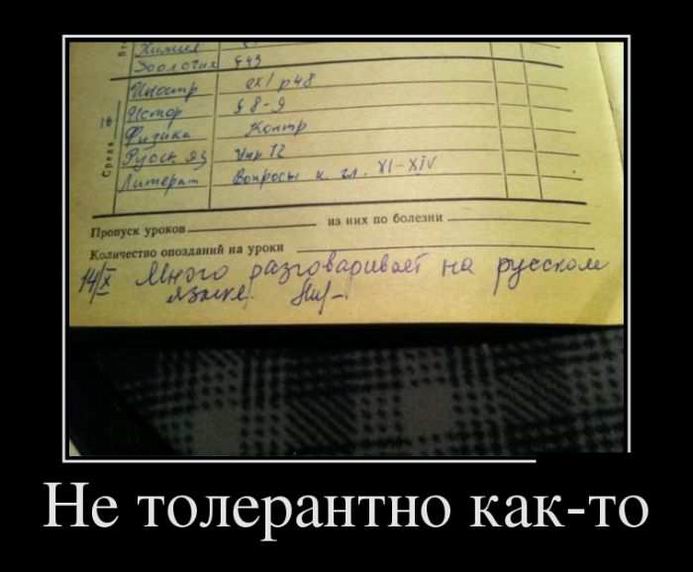 Химия
Зоология §49
Иностр ex1 p48
Истор § 8-9
Физика Контр
Русск яз Упр 12
Литерат Вопросы к гл. XI-XIV
Среда 16
Пропуск уроков из них по болезни
Количество опозданий на уроки
14/X Много разговаривает на русском
языке.
Не толерантно как-то